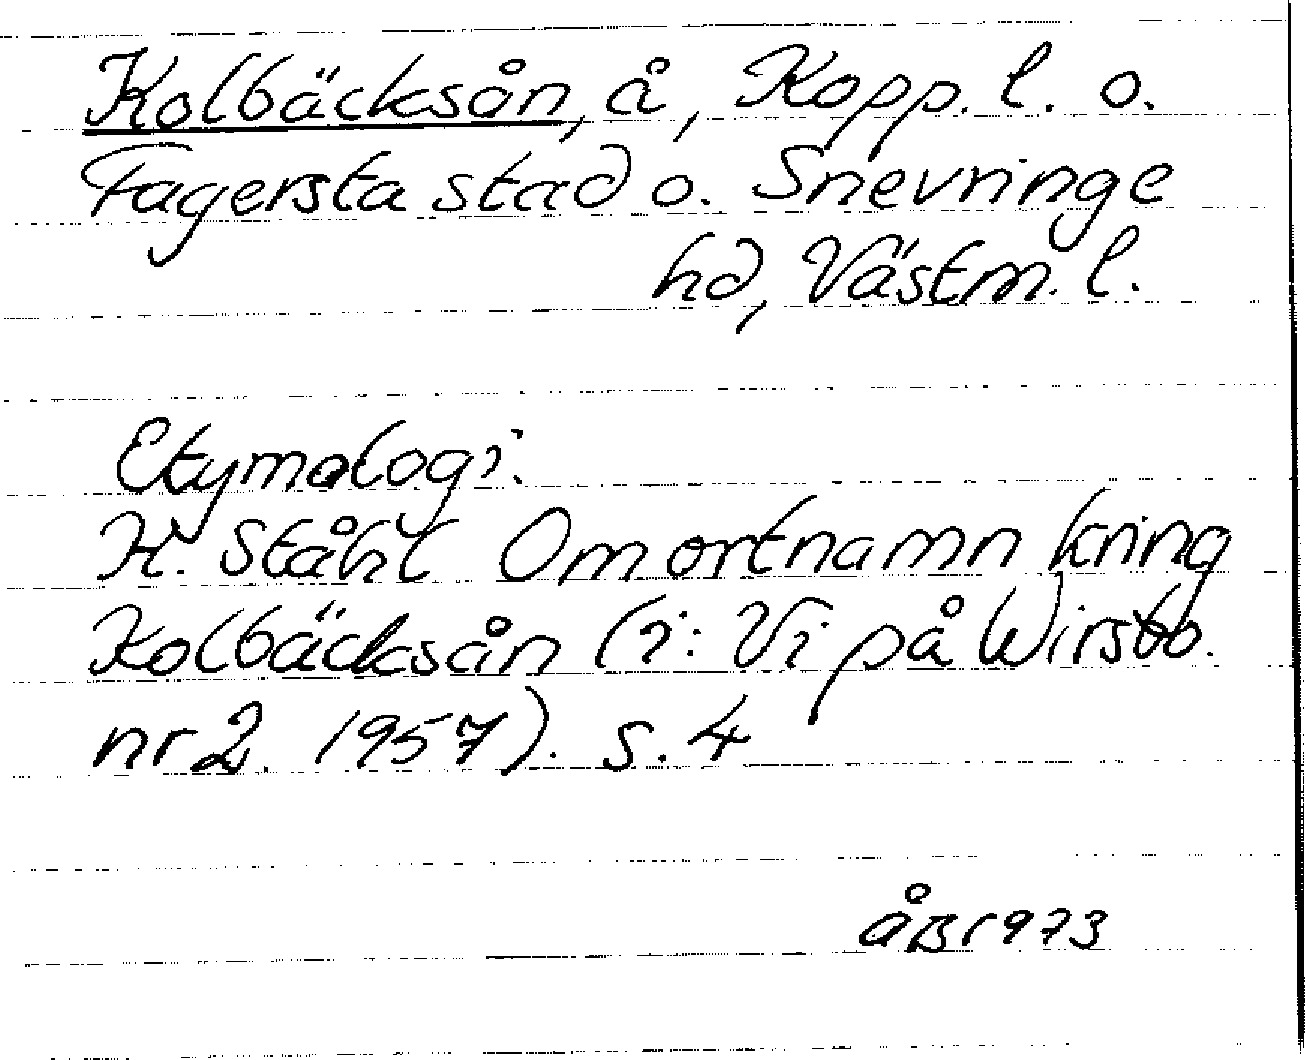 Kolbäcksån, å, Kopp. l. o.
Fagersta stad o. Snevringe
hd, Västm. l.
Etymologi:
H. Ståhl Om ortnamn kring
Kolbäcksån (i: Vi på Wirsbo.
nr 2. 1957). s. 4
ÅB 1973